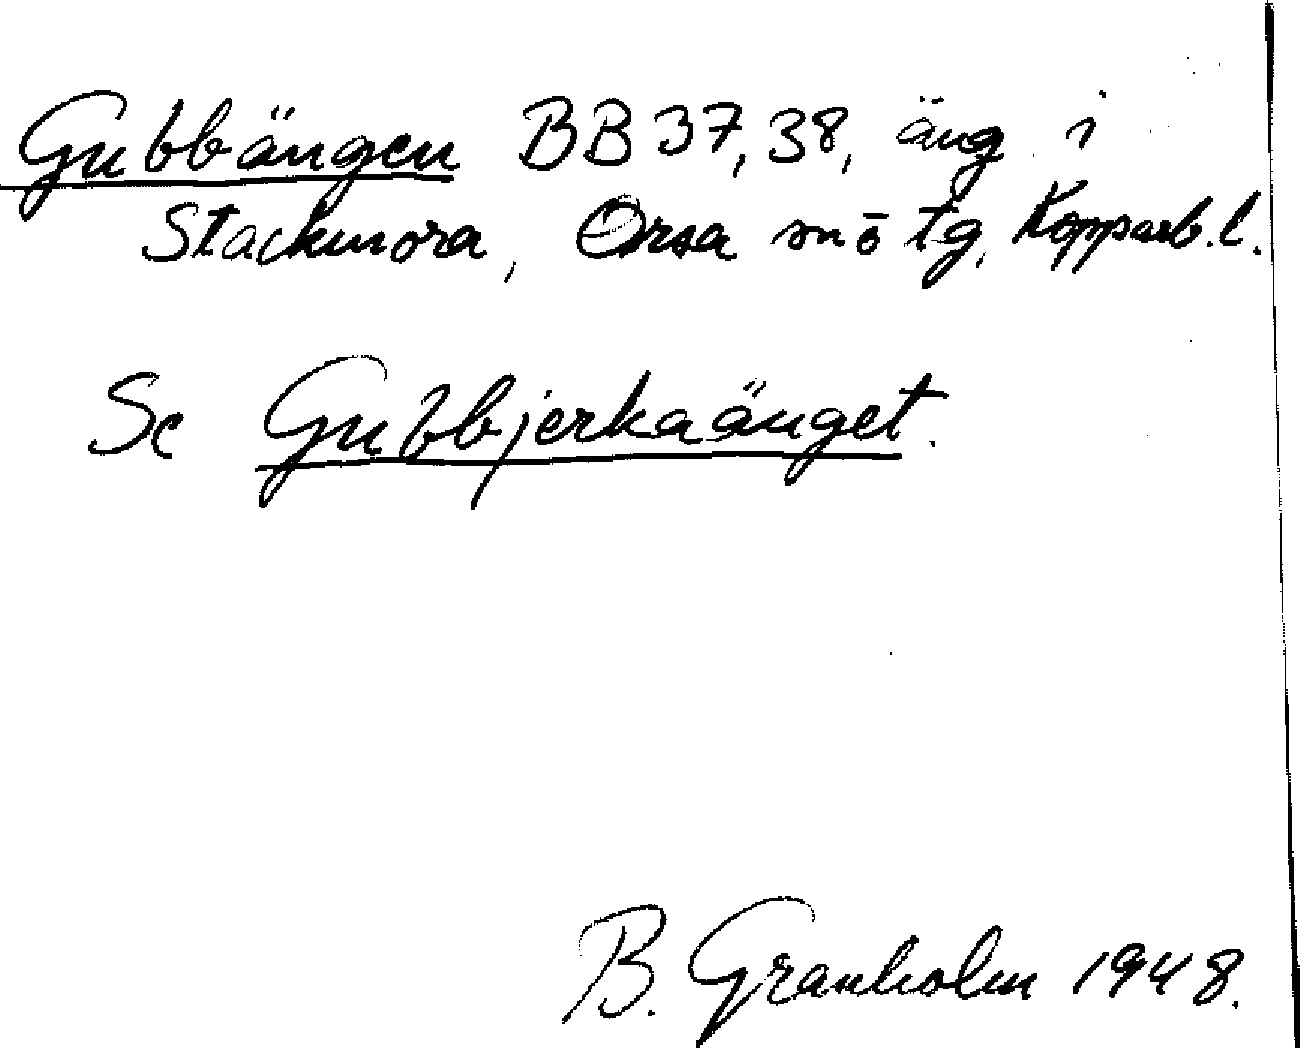 Gubbängen BB 37, 38, äng i
Stackmora, Orsa sn ō tg, Kopparb. l.
Se Gubbjerkaänget.
B. Granholm 1948.